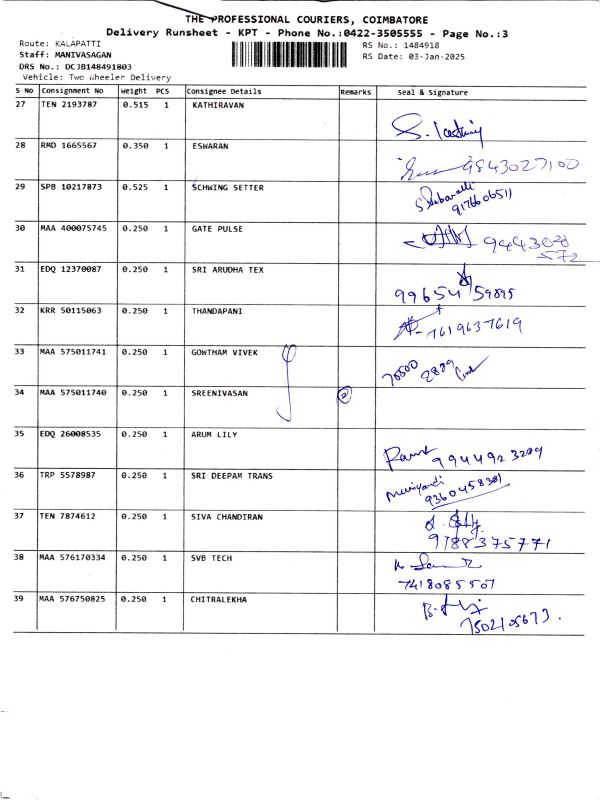 THE PROFESSIONAL COURIERS, COIMBATORE
Delivery Runsheet - KPT - Phone No.:0422-3505555 - Page No.:3
Route: KALAPATTI
RS No.: 1484918
Staff: MANIVASAGAN
RS Date: 03-Jan-2025
DRS No.: DCJB148491803
Vehicle: Two Wheeler Delivery
S No Consignment No Weight PCS Consignee Details Remarks Seal & Signature
27 TEN 2193787 0.515 1 KATHIRAVAN
28 RMD 1665567 0.350 1 ESWARAN 9843027100
29 SPB 10217873 0.525 1 SCHWING SETTER
9176606511
30 MAA 400075745 0.250 1 GATE PULSE
944308
572
31 EDQ 12370087 0.250 1 SRI ARUDHA TEX
99654 59895
32 KRR 50115063 0.250 1 THANDAPANI
7619637619
33 MAA 575011741 0.250 1 GOWTHAM VIVEK
34 MAA 575011740 0.250 1 SREENIVASAN
35 EDQ 26008535 0.250 1 ARUM LILY
9944923209
36 TRP 5578987 0.250 1 SRI DEEPAM TRANS
9360458381
37 TEN 7874612 0.250 1 SIVA CHANDIRAN
9788375771
38 MAA 576170334 0.250 1 SVB TECH
7418085507
39 MAA 576750825 0.250 1 CHITRALEKHA
7502105673.